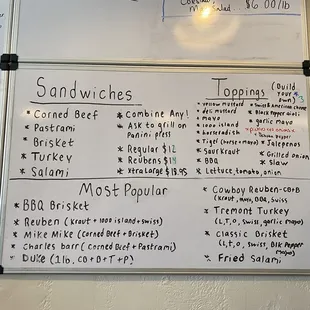 $6.00/lb
Sandwiches
* Corned Beef
* Pastrami
* Brisket
* Turkey
* Salami
* Combine Any!
* Ask to grill on
Panini press
* Regular $12
* Reubens $14
* Xtra Large $18.95
Toppings (Build your own)
* yellow mustard
* deli mustard
* mayo
* 1000 island
* horseradish
* Tiger (horse+mayo)
* Saurkraut
* BBQ
* Lettuce, tomato, onion
* Swiss & American cheese
* Black Pepper aioli
* garlic mayo
* Jalepenos
* Grilled onion
* Slaw
Most Popular
* BBQ Brisket
* Reuben (kraut + 1000 island + swiss)
* Mike Mike (Corned Beef + Brisket)
* Charles barr (Corned Beef + Pastrami)
* Duke (1lb, CB+B+T+P)
* Cowboy Reuben-CB+B
(kraut, mayo, BBQ, Swiss
* Tremont Turkey
(L,T,O, swiss, garlic mayo)
* Classic Brisket
(L,T,O, Swiss, Blk Pepper
Mayo)
* Fried Salami